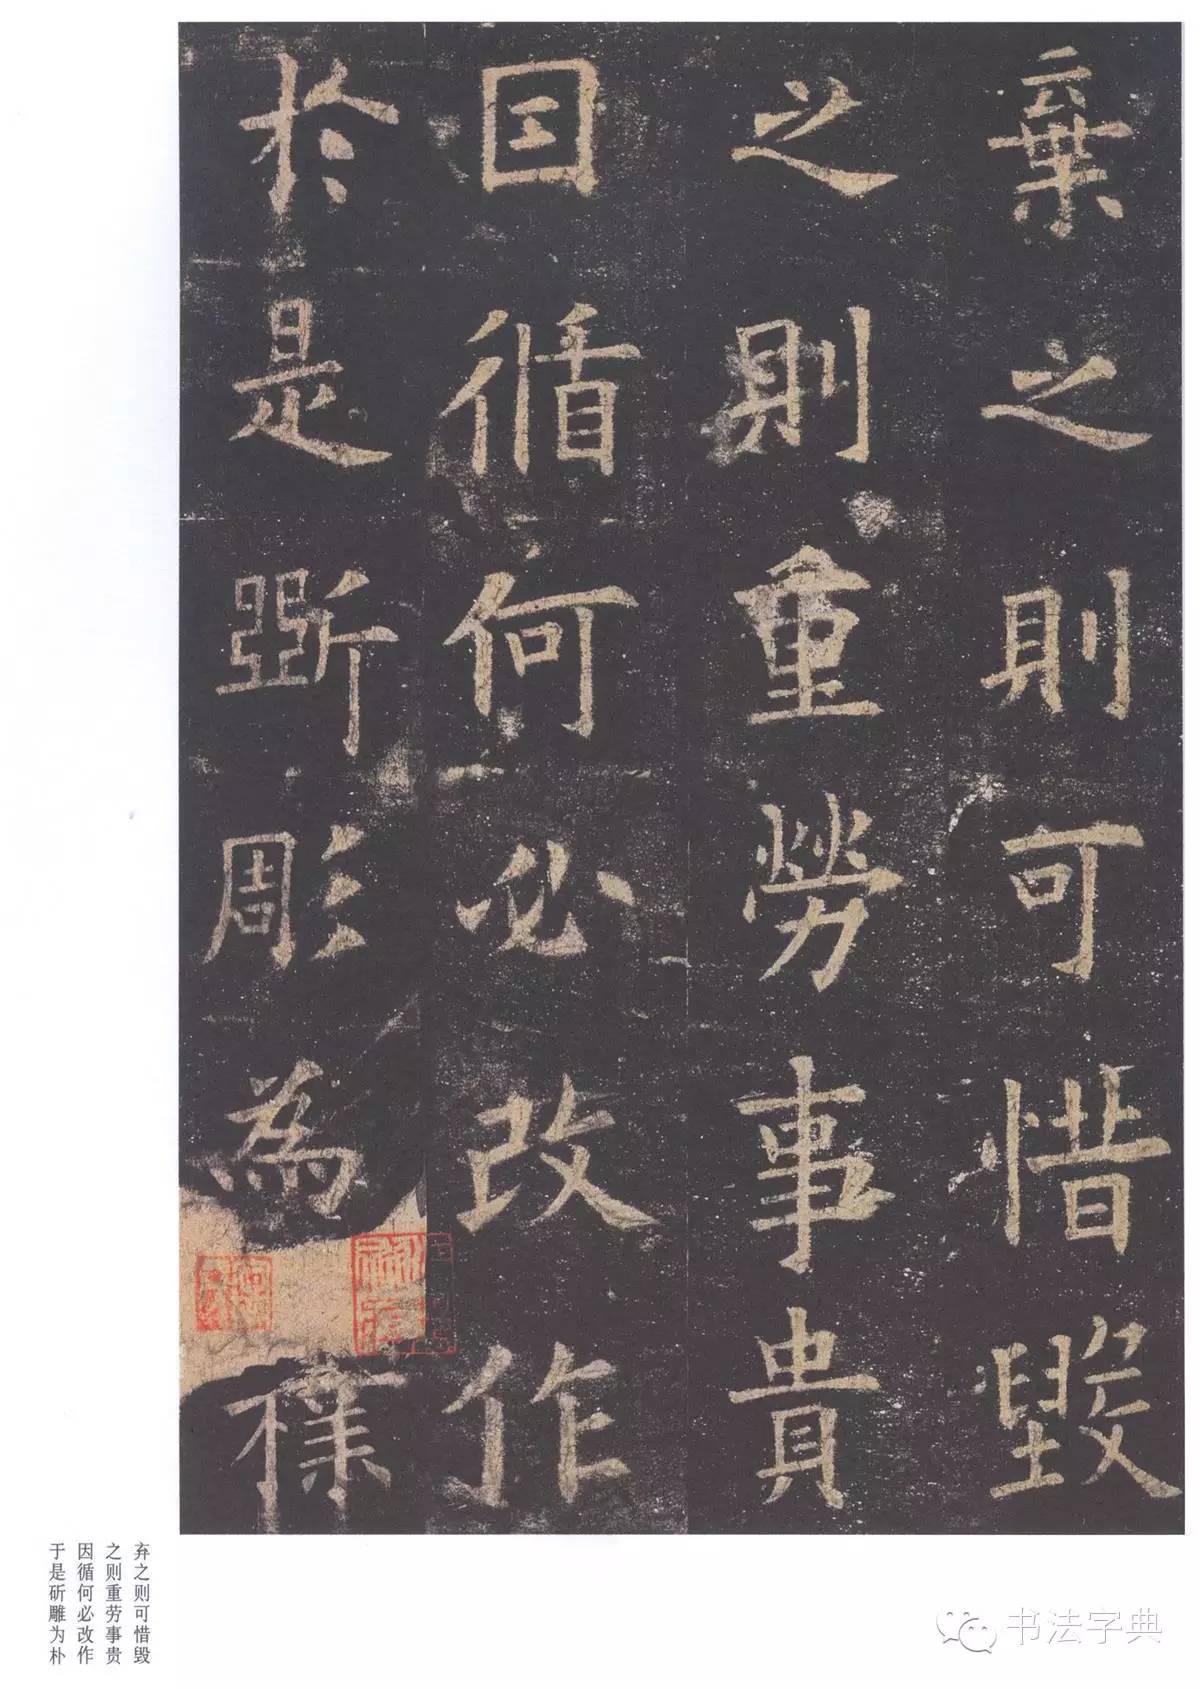 棄之則可惜毀
之則重勞事貴
因循何必改作
於是斲彫為樸
弃之则可惜毁
之则重劳事贵
因循何必改作
于是斫雕为朴
书法字典